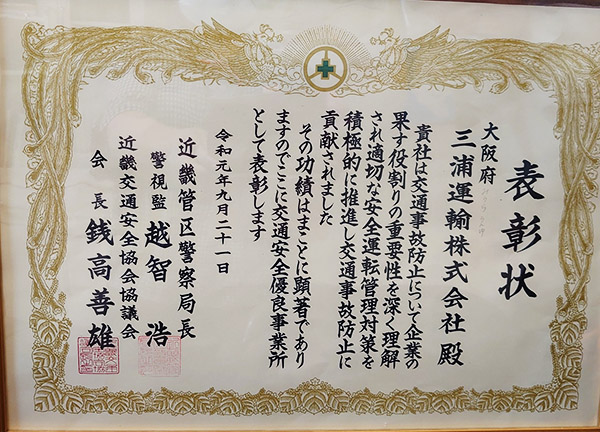 表彰状
大阪府
三浦運輸株式会社 殿
貴社は交通事故防止について企業の
果す役割りの重要性を深く理解
され適切な安全運転管理対策を
積極的に推進し交通事故防止に
貢献されました
その功績はまことに顕著であり
ますのでここに交通安全優良事業所
として表彰します
令和元年九月二十一日
近畿管区警察局長
警視監 越智 浩
近畿交通安全協会協議会
会長 銭高善雄